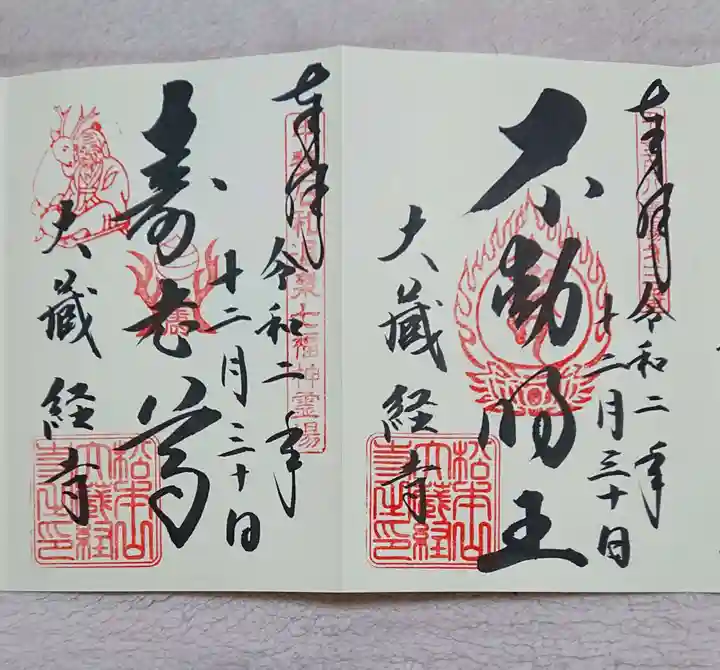 奉拝
令和二年
十二月三十日
不動明王
大蔵経寺
松本山
大蔵経
寺之印
奉拝
令和二年
十二月三十日
石和温泉七福神霊場
寿老尊
大蔵経寺
松本山
大蔵経
寺之印